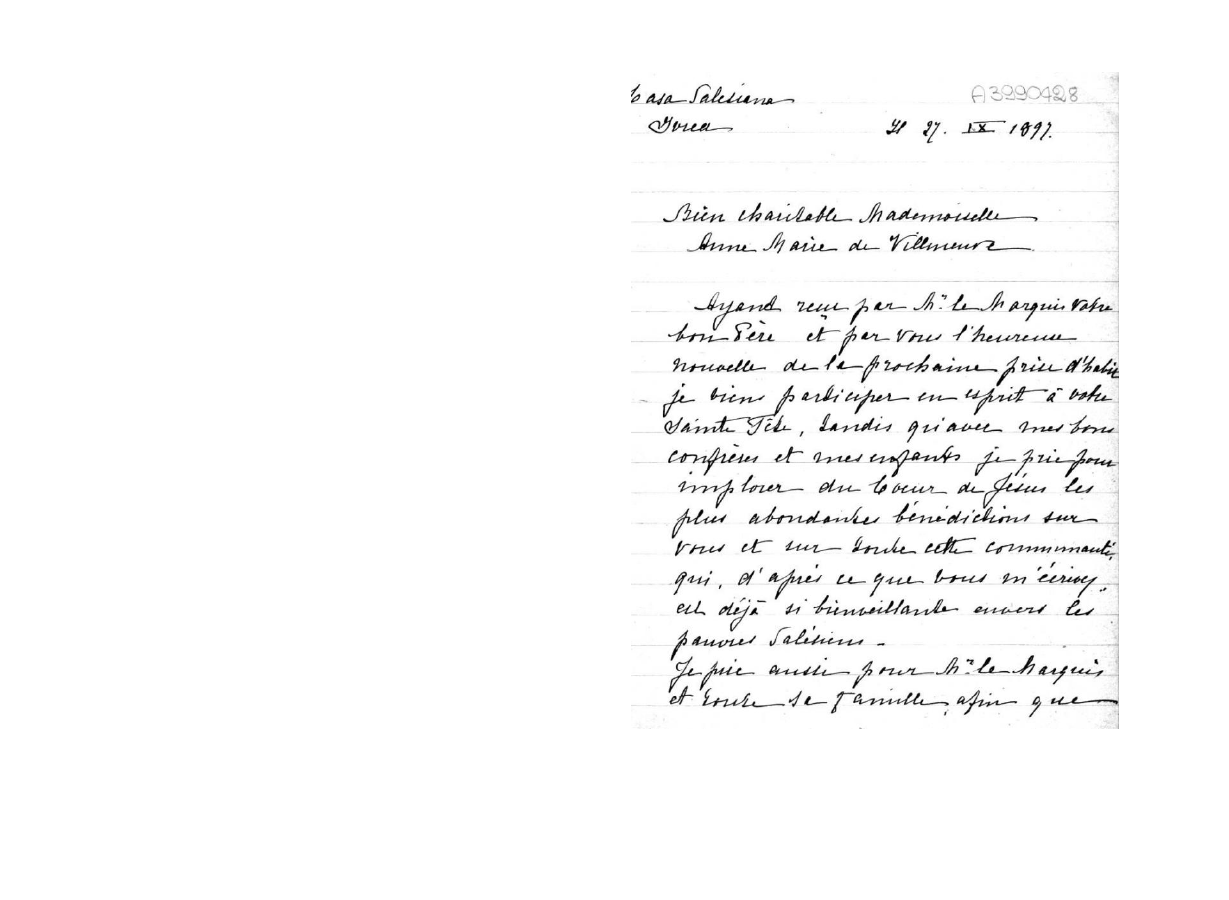 Casa Salesiana
A3990428
Ivrea
Il 27. IX 1897.
Bien charitable Mademoiselle
Anne Marie de Villeneuve
Ayant reçu par Mr. le Marquis Votre
bon Père et par Vous l'heureuse
nouvelle de la prochaine prise d'habit
je viens participer en esprit à votre
Sainte Fête, tandis qu'avec mes bons
confrères et mes enfants je prie pour
implorer du Coeur de Jésus les
plus abondantes bénédictions sur
vous et sur toute cette communauté,
qui, d'après ce que vous m'écrivez,
est déjà si bienveillante envers les
pauvres Salésiens -
Je prie aussi pour Mr. le Marquis
et toute sa famille, afin que